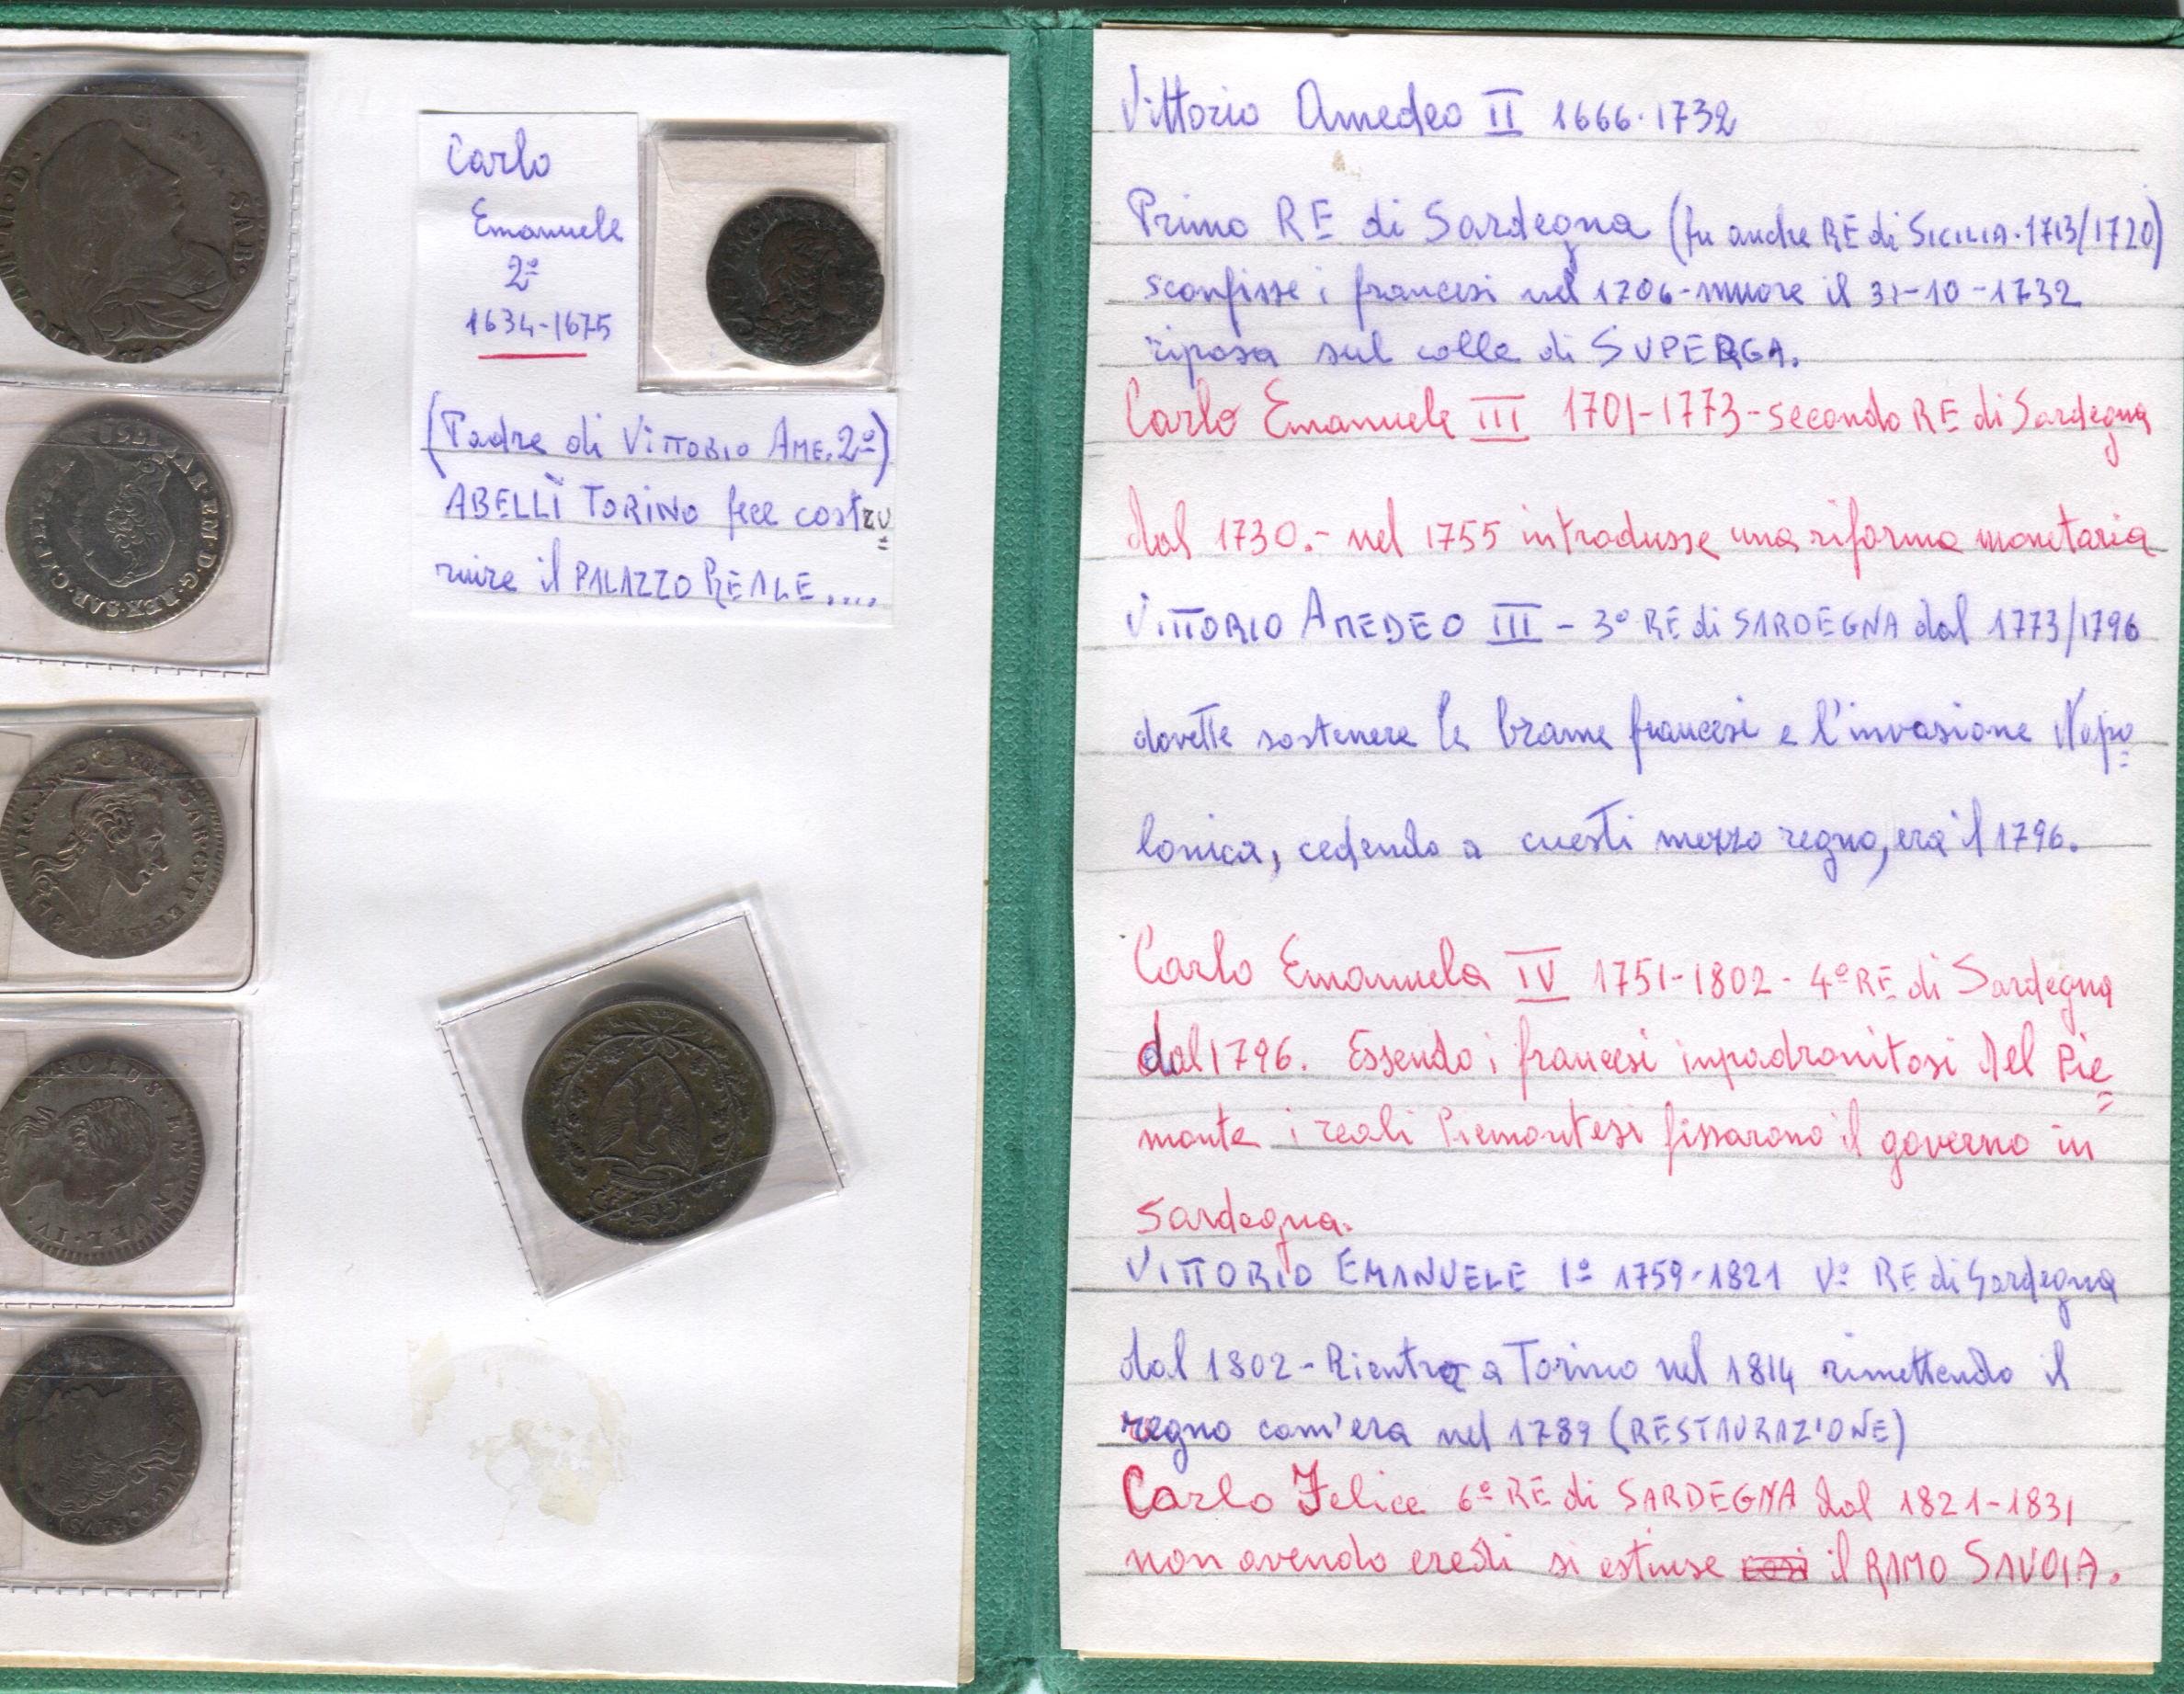 Carlo
Emanuele
2º
1634-1675
(Padre di VITTORIO AME. 2º)
ABELLÌ TORINO fece costru
=
ruire il PALAZZO REALE....
SAB.
REX.SAR.
CAROLUS.EMANUEL.IV.
Vittorio Amedeo II 1666.1732
Primo RE di Sardegna (fu anche RE di SICILIA.1713/1720)
sconfisse i francesi nel 1706-muore il 31-10-1732
riposa sul colle di SUPERGA.
Carlo Emanuele III 1701-1773-secondo RE di Sardegna
dal 1730.- nel 1755 introdusse una riforma monetaria
VITTORIO AMEDEO III - 3º RE di SARDEGNA dal 1773/1796
dovette sostenere le brame francesi e l'invasione Napo
=
lonica, cedendo a cuesti mezzo regno, era il 1796.
Carlo Emanuela IV 1751-1802- 4º RE di Sardegna
dal 1796. Essendo i francesi inpadronitosi del Pie
=
monte i reali Piemontesi fissarono il governo in
Sardegna.
VITTORIO EMANUELE 1º 1759-1821 Vº RE di Sardegna
dal 1802-Rientra a Torino nel 1814 rimettendo il
regno com'era nel 1789 (RESTAURAZIONE)
Carlo Felice 6º RE di SARDEGNA dal 1821-1831
non avendo eredi si estinse così il RAMO SAVOIA.